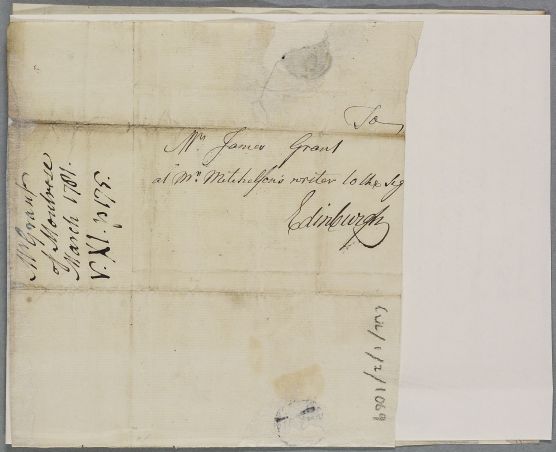 To
Mr. James Grant
at Mr. Mitchelson's writer to the Sig
Edinburgh
Mr Grant
of Montrose
March 1781.
VXI. p. 175.
1069